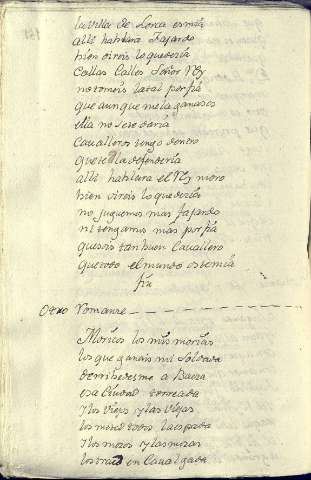 la villa de Lorca es mia
alli hablara Fajardo
bien oireis lo que deçia
Calles Calles Señor Rey
no tomeis la tal porfia
que aunque me la ganases
ella no se te daria
Caualleros tengo dentro
que te la defenderia
alli hablara el Rey moro
bien oireis lo que deçia
no juguemos mas fajardo
ni tengamos mas porfia
que sois tan buen Cauallero
que todo el mundo os temia
fin
Otro Romançe
Moricos los mis moricos
los que ganais mi Soldada
derribedesme a Baeza
esa Ciudad torreada
y los viejos y las viejas
los meted todos a la espada
y los moços y las moças
los traed en Caualgada